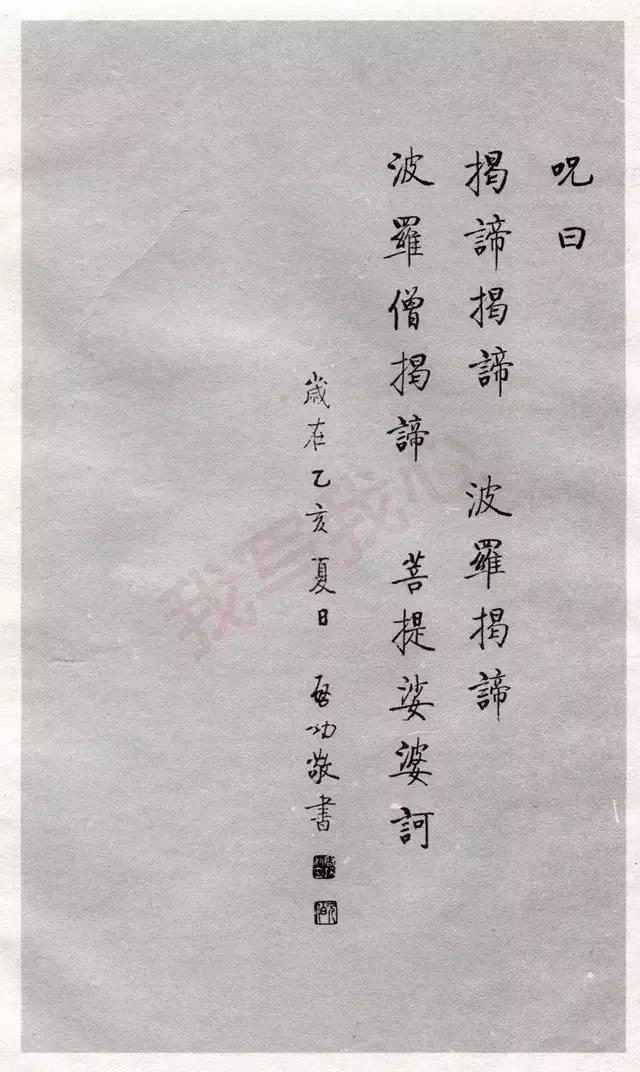 呪曰
揭諦揭諦 波羅揭諦
波羅僧揭諦 菩提娑婆訶
歲在乙亥夏日 啓功敬書
我写我心